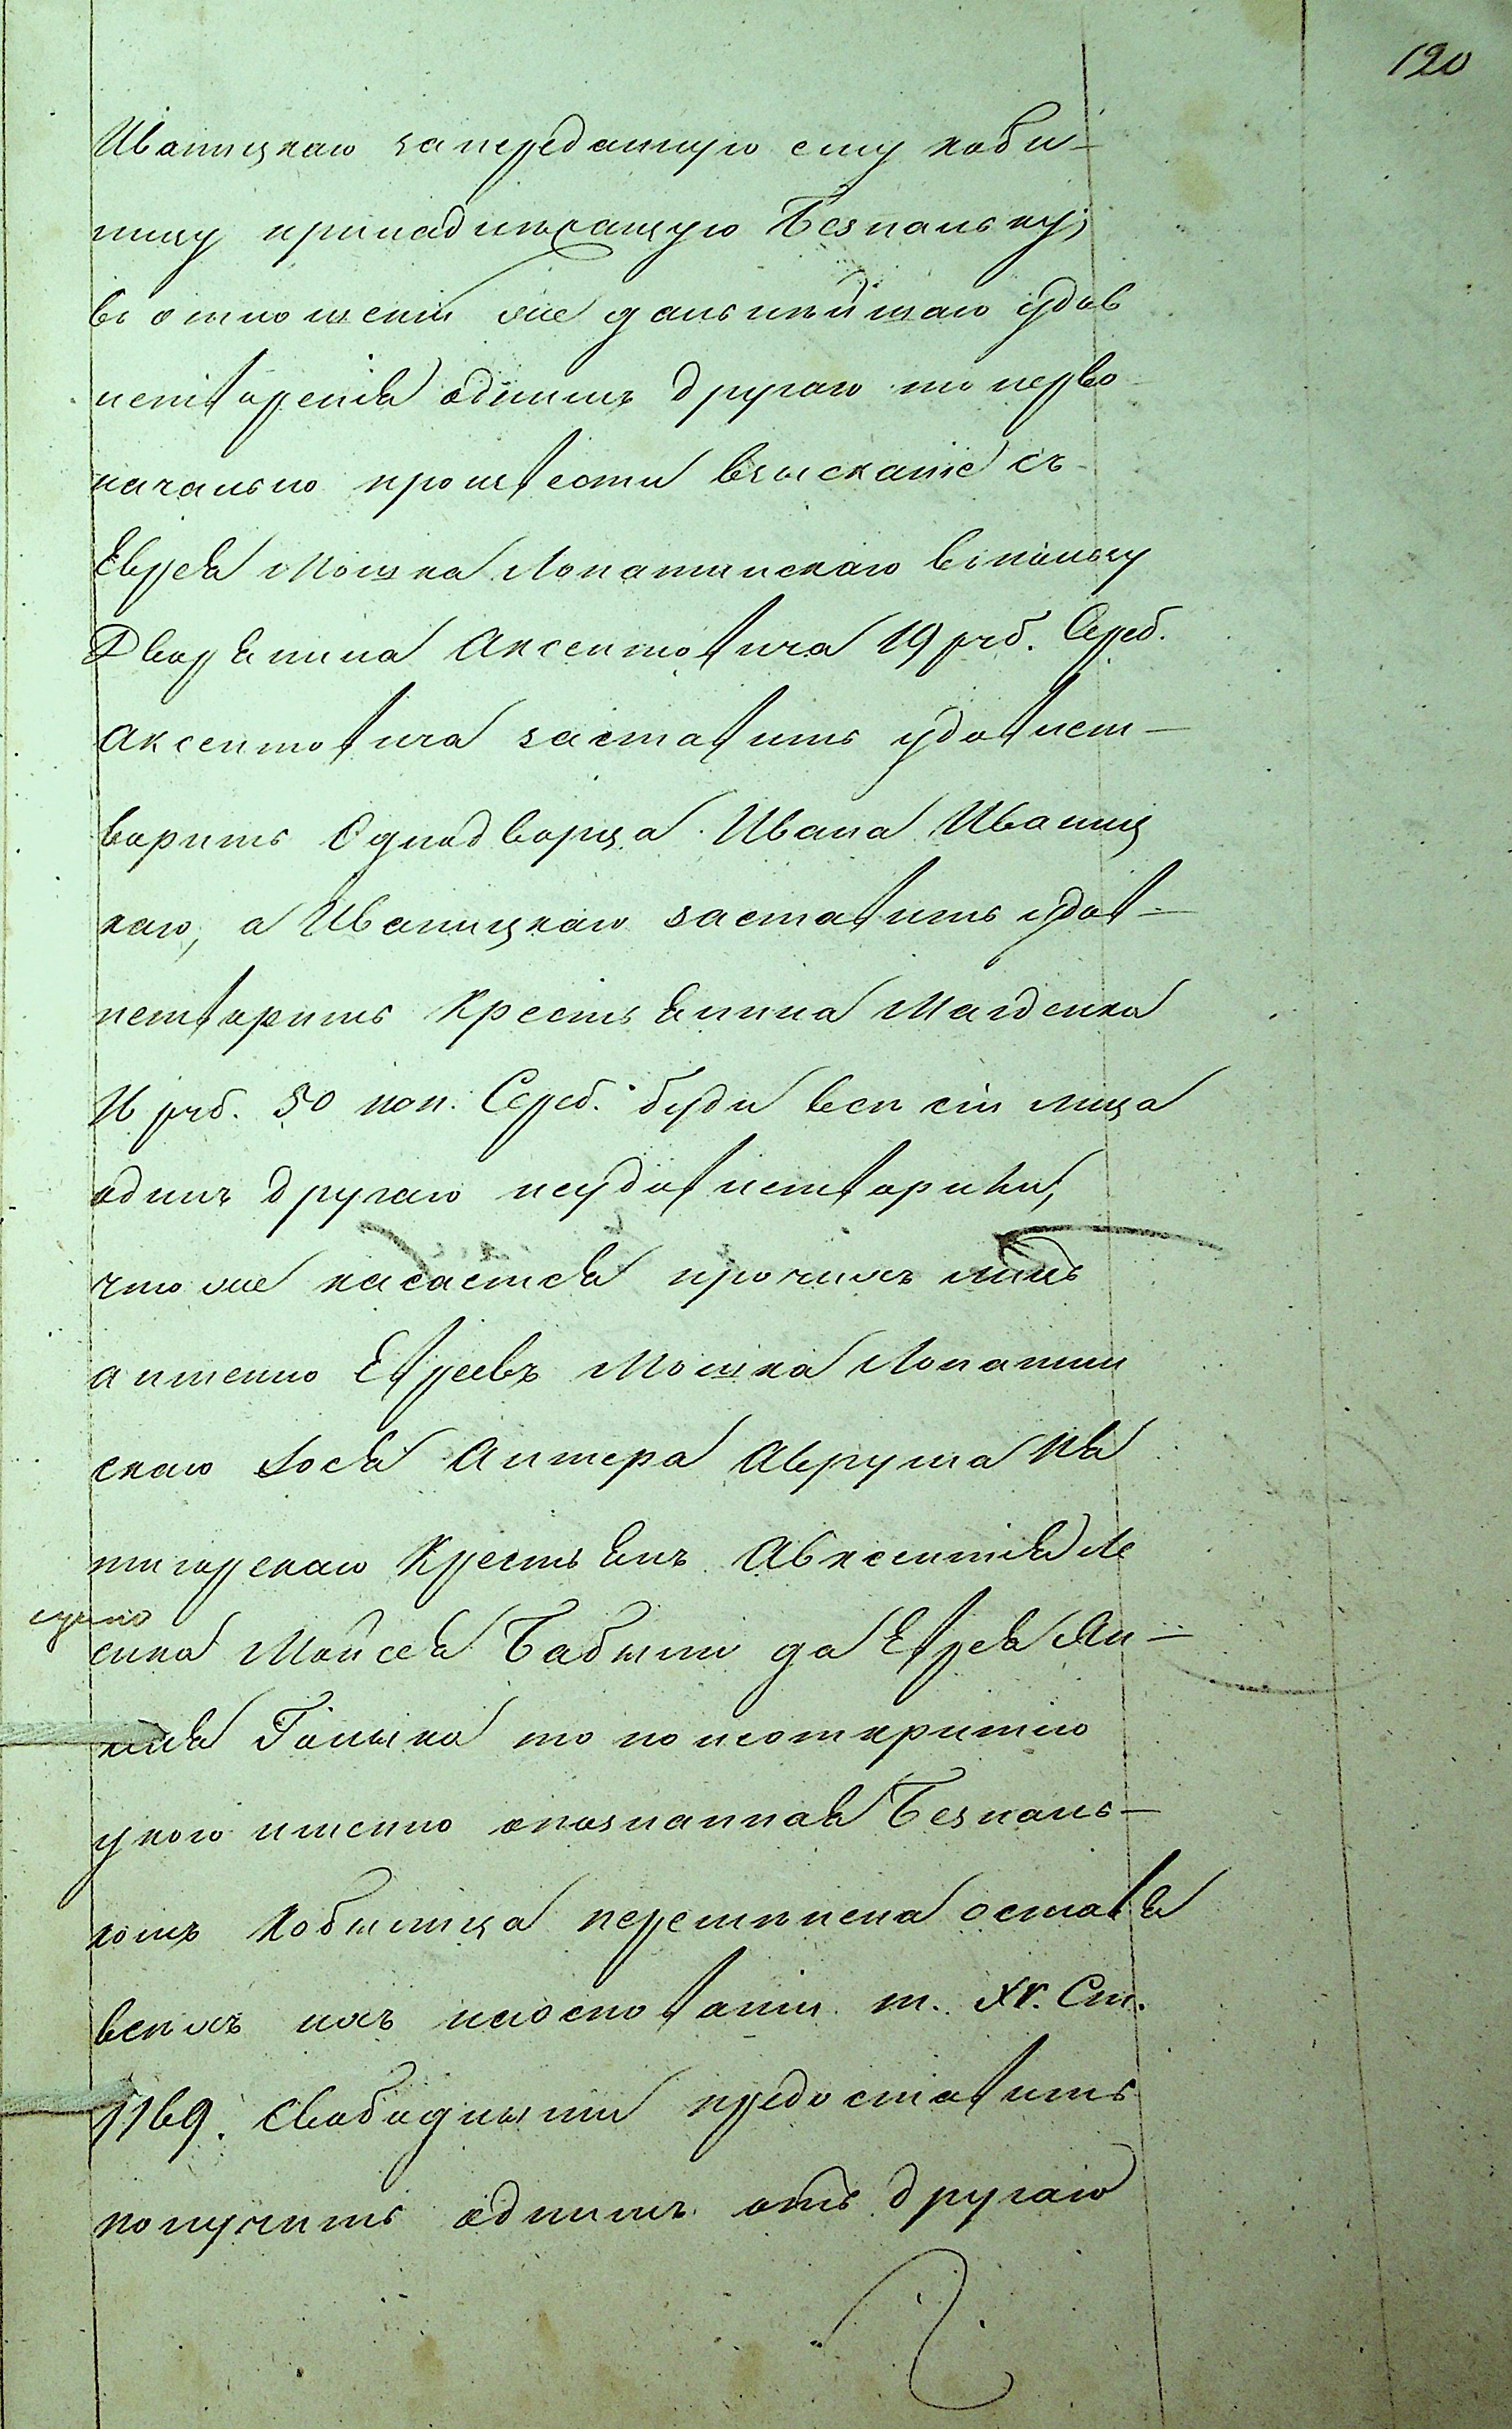 120
Иваницкаго за переданную ему кобы-
лицу принадлежащую Безпалько;
въ отношеніи же дальнѣйшаго удов
летворенія однимъ другаго то перво
начально произвести взысканіе съ
Еврея Мошка Лопатинскаго въ пользу
Дворянина Аксентовича 19 руб. Сереб.
Аксентовича заставить удовлет-
ворить Однодворца Ивана Иваниц
каго, а Иваницкаго заставить удов-
летворить Крестьянина Магденка
16 руб. 50 коп. Сереб. буди всѣ сіи лица
одинъ другаго неудовлетворили,
что же касается прочихъ лицъ
а именно Евреевъ Мошка Лопатин
скаго Іося Антера Аврума Пя
тигорскаго Крестьянъ Авксентія Ле
сика Мойсея Бабыни да Еврея Ян-
келя Галыка то по неоткрытію
укого именно опознанная Безпаль-
комъ Кобылица перемѣнена оставя
всѣхъ ихъ наоснованіи т. XV. Ст.
1169. Свободными предоставить
получить однимъ отъ другаго